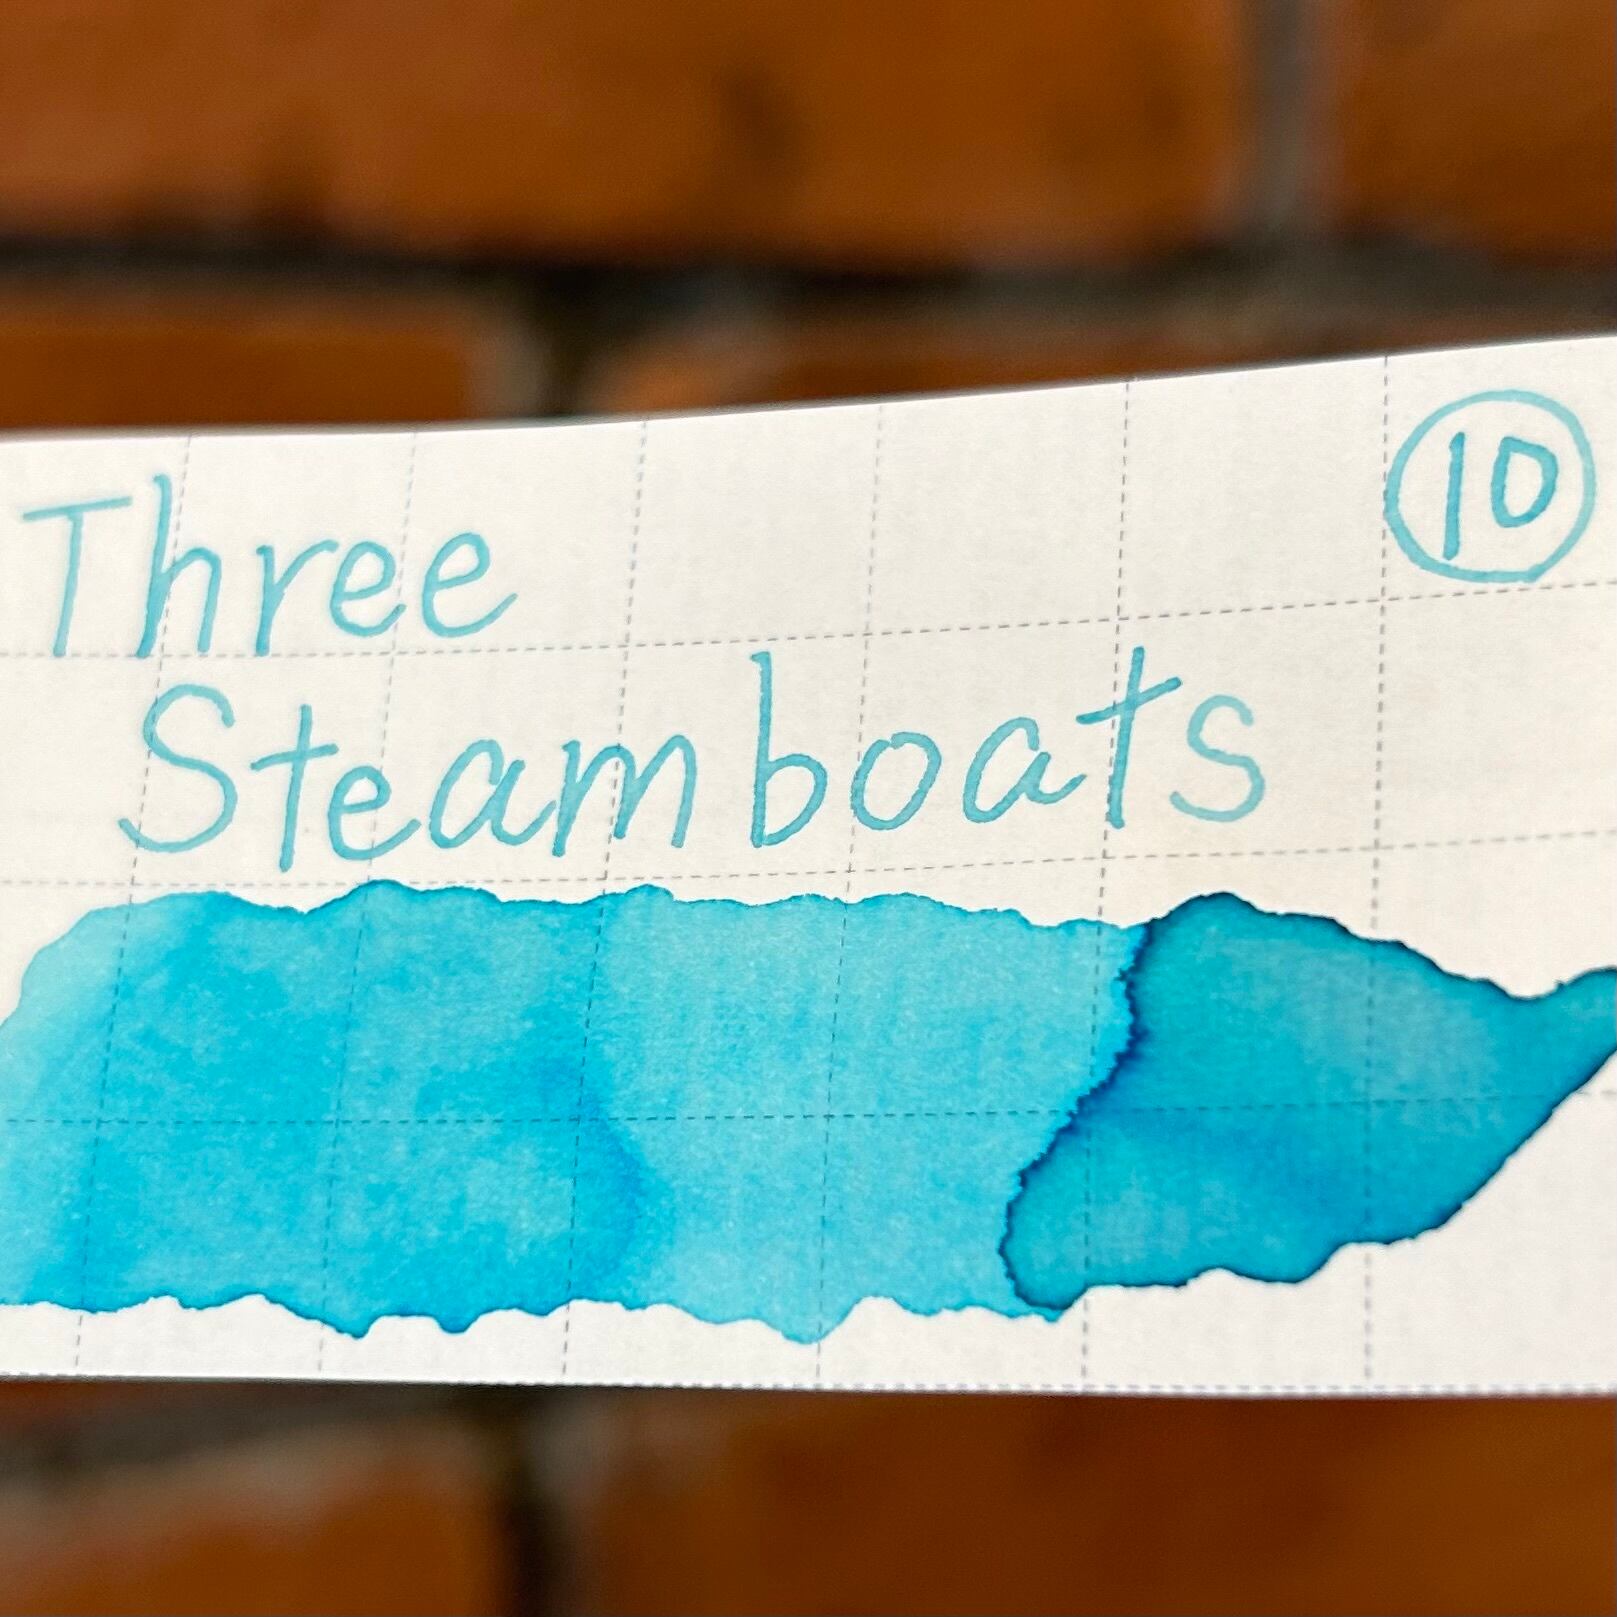 Three
10
Steamboats